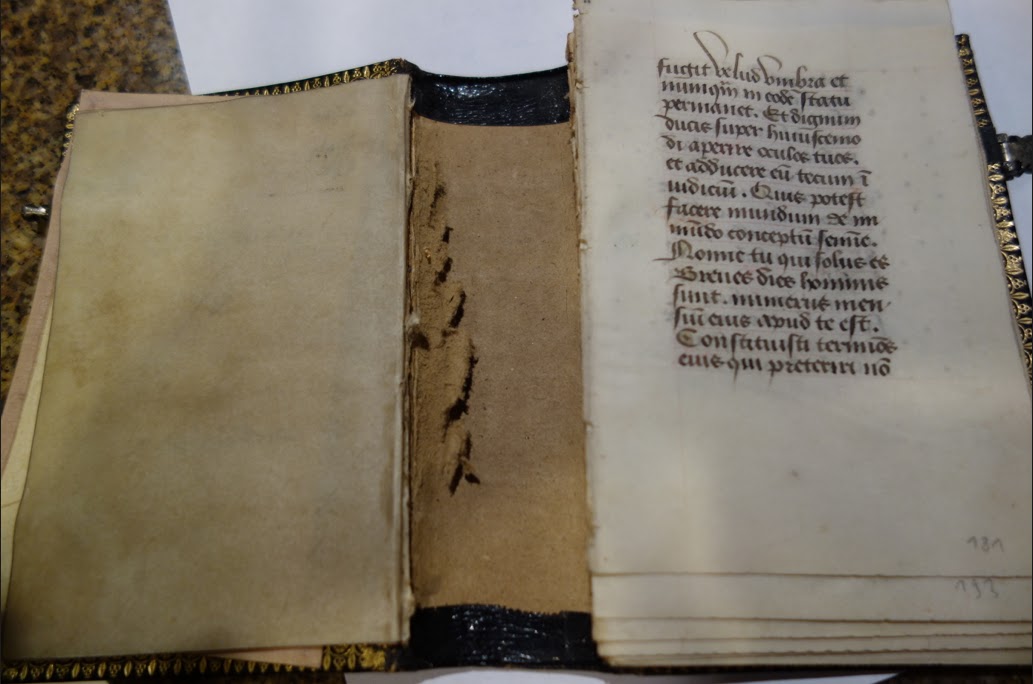 fugit velud vmbra et
nunqm̄ in eodē statu
permanet. Et dignum
ducis super huiuscemo
di aperire oculos tuos.
et adducere eū tecum ī
iudiciū. Quis potest
facere mundum de im
mūdo conceptū semīe.
Nonne tu qui solus es
Breues dies hominis
sunt. numerus men-
siū eius apud te est.
Constituisti terminōs
eius qui preteriri nō
181
193